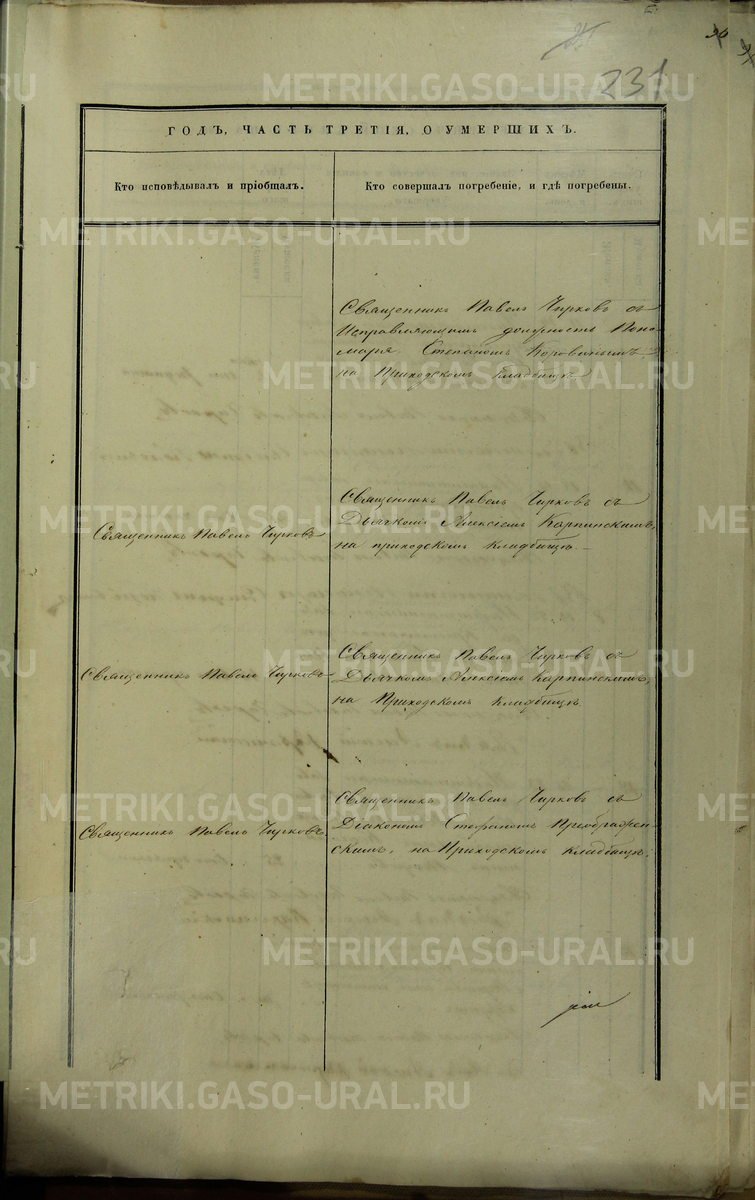 231
ГОДЪ, ЧАСТЬ ТРЕТІЯ, О УМЕРШИХЪ.
Кто исповѣдывалъ и пріобщалъ.
Кто совершалъ погребеніе, и гдѣ погребены.
Священникъ Павелъ Чирковъ съ
Исправляющимъ должность Поно-
маря Степаномъ Коровинымъ
на Приходскомъ кладбищѣ
Священникъ Павелъ Чирковъ
Священникъ Павелъ Чирковъ съ
Дьячкомъ Алексѣемъ Карпинскимъ,
на приходскомъ кладбищѣ.
Священникъ Павелъ Чирковъ
Священникъ Павелъ Чирковъ съ
Дьячкомъ Алексѣемъ Карпинскимъ,
на Приходскомъ Кладбищѣ
Священникъ Павелъ Чирковъ.
Священникъ Павелъ Чирковъ съ
Діакономъ Стефаномъ Преображен-
скимъ, на Приходскомъ кладбищѣ.
METRIKI.GASO-URAL.RU